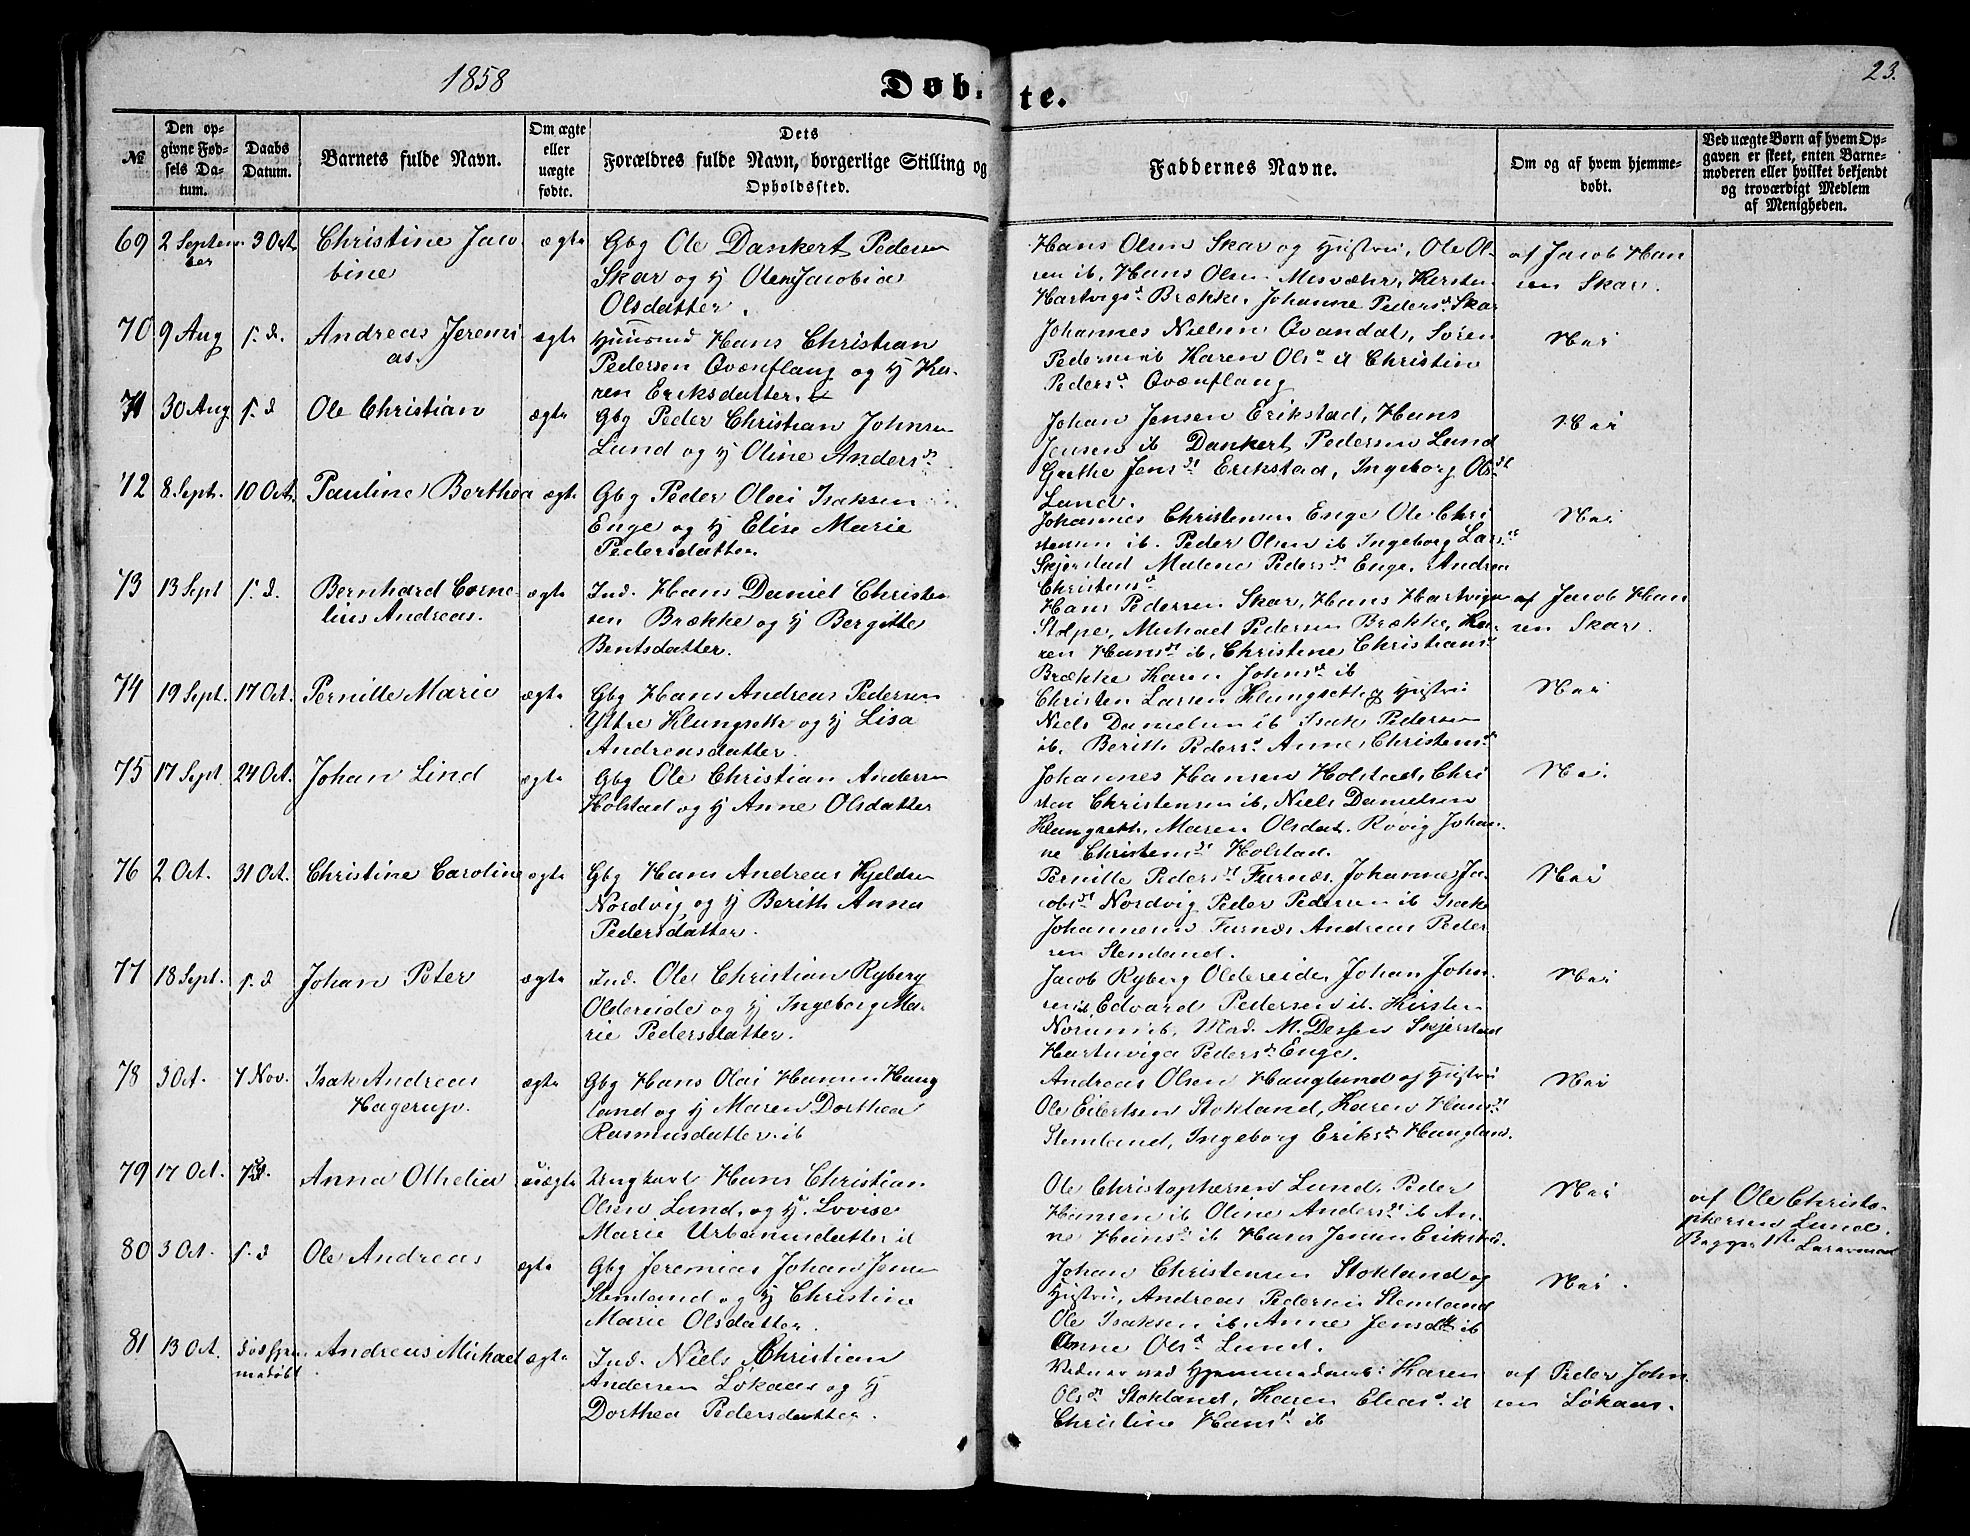 1858
Døbte.
23.
№
Den opgivne Fødsels Datum.
Daabs Datum.
Barnets fulde Navn.
Om ægte eller uægte fødte.
Dets Forældres fulde Navn, borgerlige Stilling og Opholdssted.
Faddernes Navne.
Om og af hvem hjemmedobt.
Ved uægte Børn af hvem Opgaven er skeet, enten Barnemoderen eller hvilket bekjendt og troværdigt Medlem af Menigheden.
69 2 Septem 3 Oct Christine Jaco ægte Gbg Ole Dankert Peders
ber bine Skar og Olen Jacobia
Olsdatter.
Hans Olsen Skar og Hustru, Ole Ol
sen ib, Hans Olsen Misvæhr, Kersten
Hartvigsd Brække, Johanne Pedersd Skar
af Jacob Han
sen Skar.
70 9 Aug s. d. Andreas Jeremi ægte Huusmd Hans Christian
as. Pedersen Qvænflang og H Ka
ren Eriksdatter.
Johannes Nielsen Qvandal, Søren
Pedersen ib Karen Olsd Christin
Pedersd Qvænflang
Nei
71 30 Aug s. d Ole Christian ægte Gbg Peder Christian Johnse
Lund og H Oline Andersd
Johan Jensen Erikstad, Hans
Jensen ib Dankert Pedersen Lund
Grethe Jensdt Erikstad, Ingeborg Olsdt
Lund.
Nei
72 8 Sept. 10 Oct Pauline Berthea ægte Gbg Peder Olai Isaksen
Enge og H Elise Marie
Pedersdatter
Johannes Christensen Enge Ole Chri
stensen ib. Peder Olsen ib Ingeborg Larsdt
Skjerstad Malene Pedersdt Enge, Andrea
Christensd
Nei
73 13 Sept s. d. Bernhard Corne ægte Ind. Hans Daniel Christen
lius Andreas. sen Brække og H Bergitte
Bentsdatter.
Hans Pedersen Skar, Hans Hartvigs
Stolpe, Michael Pedersen Brække, Ka
ren Hansdt ib, Christine Christiansd
Brække Karen Johnsd ib
af Jacob Han
sen Skar.
74 19 Sept. 17 Oct. Pernille Marie ægte Gbg Hans Andreas Pedersen
Ytre Klungsette og H Lisa
Andreasdatter.
Christen Larsen Klungsette og Hustru
Niels Danielsen ib Isak Pedersen
ib. Berith Pedersd Anne Christensd
Nei
75 17 Sept 24 Oct. Johan Lind ægte Gbg Ole Christian Anders
Holstad og H Anne Olsdatter
Johannes Hansen Holstad, Chri
sten Christensen ib, Niels Danielsen
Klungsett, Maren Olsdat. Røvig Johan
ne Christensdt Holstad.
Nei.
76 2 Oct. 31 Oct. Christine Caroline ægte Gbg Hans Andreas Kjelds
Nordvig og H Berith Anna
Pedersdatter.
Pernille Pedersdt Furnæs, Johanne Ja
cobsdt Nordvig Peder Pedersen ib Isak
Johannesen Furnæs Andreas Peder
sen Stemland.
Nei
77 18 Sept. s. d Johan Peter ægte Ind. Ole Christian Ryberg
Oldereide og H Ingeborg Ma
rie Pedersdatter.
Jacob Ryberg Oldereide, Johan John
sen ib, Edvard Pedersen ib. Kirsten
Norum ib, Mad. M. Dessen Skjerstad
Hartviga Pedersd Enge.
Nei
78 3 Oct. 7 Nov. Isak Andreas ægte Gbg Hans Olai Hansen Haug
Hagerup. land og H Maren Dorthea
Rasmusdatter ib
Andreas Olsen Hauglund og Hustru
Ole Eilertsen Stokland, Karen Hansdt
Stemland, Ingeborg Eriksd Hauglan.
Nei
79 17 Oct. Anna Othelia uægte Ungkarl Hans Christian
Olsen Lund, og H. Lovise
Marie Urbanusdatter ib
Ole Christophersen Lund, Peder
Hansen ib Oline Andersdt ib An
ne Hansd ib Hans Jensen Erikstad.
Nei
af Ole Christo
phersen Lund.
80 3 Oct. s. d Ole Andreas ægte Gbg Jeremias Johan Jens
Stemland og H Christine
Marie Olsdatter.
Johan Christensen Stokland og
Hustru, Andreas Pedersen Stemland
Ole Isaksen ib. Anne Jensd ib
Anne Olsd Lund.
Nei.
81 13 Oct. Andreas Michael ægte Ind. Niels Christian
Andersen Løkaas og H
Dorthea Pedersdatter.
Vidner ved Hjemmedaab: Karen
Olsdt Stokland, Karen Eliasd ib
Christine Hansd ib
af Peder John
sen Løkaas.